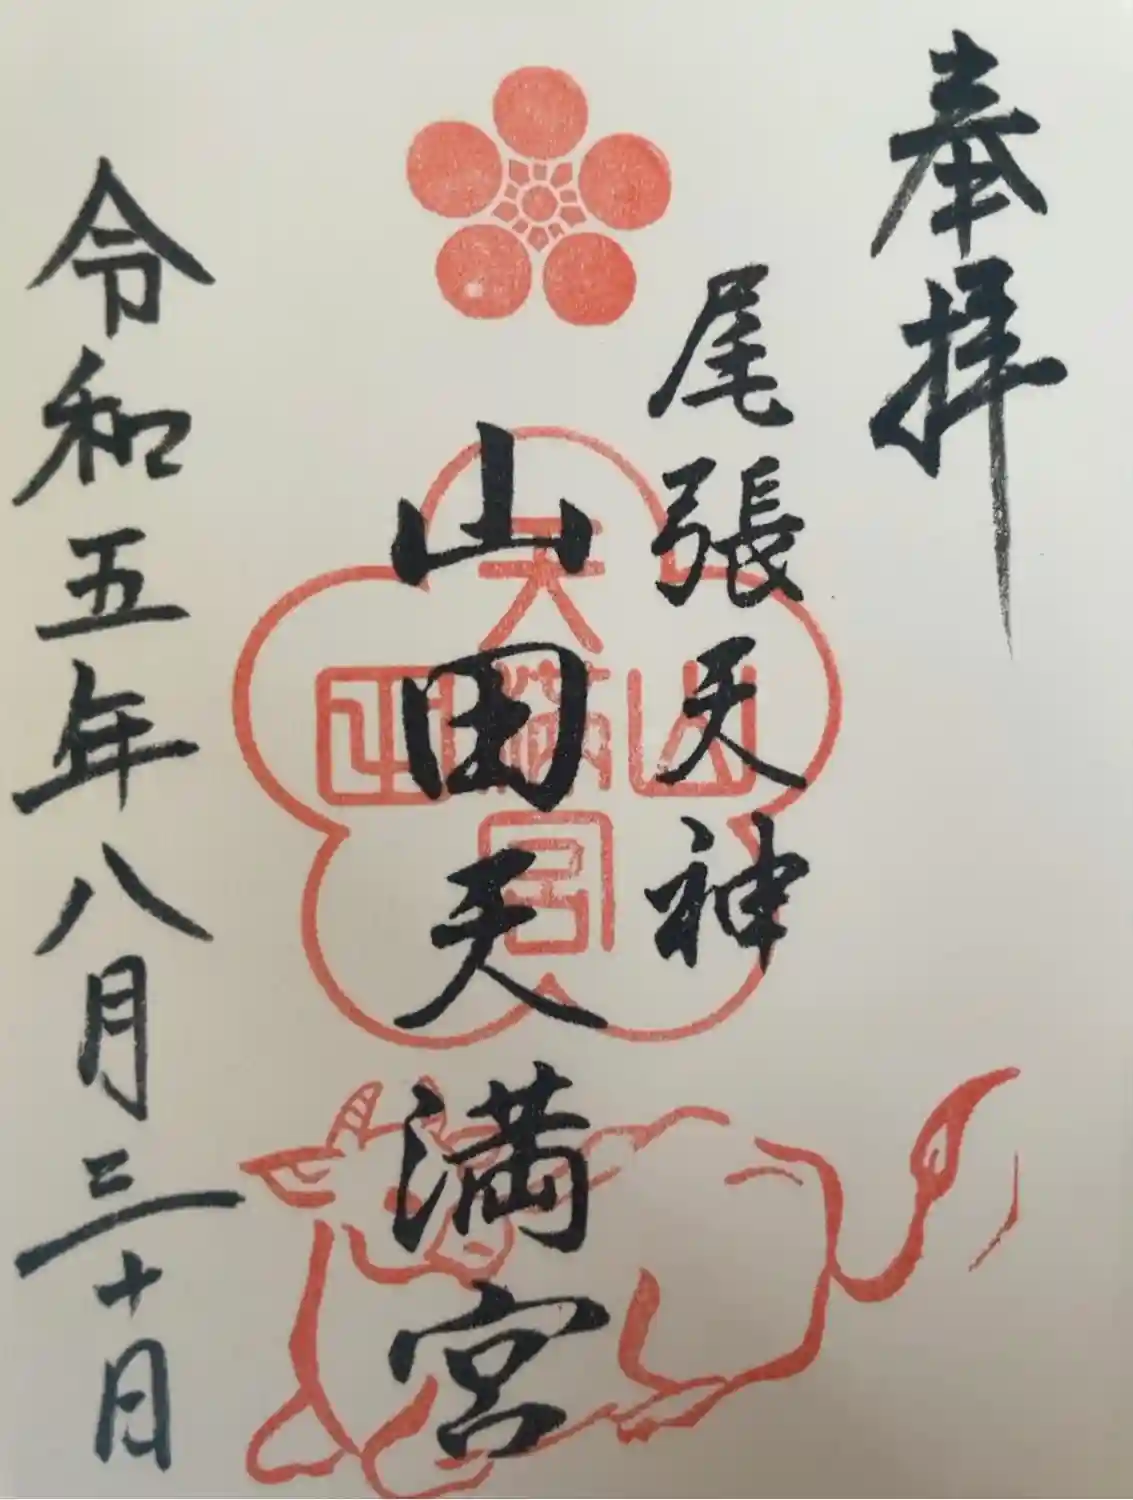 奉拝
尾張天神
山田天満宮
令和五年八月三十日
天
山満田
宮